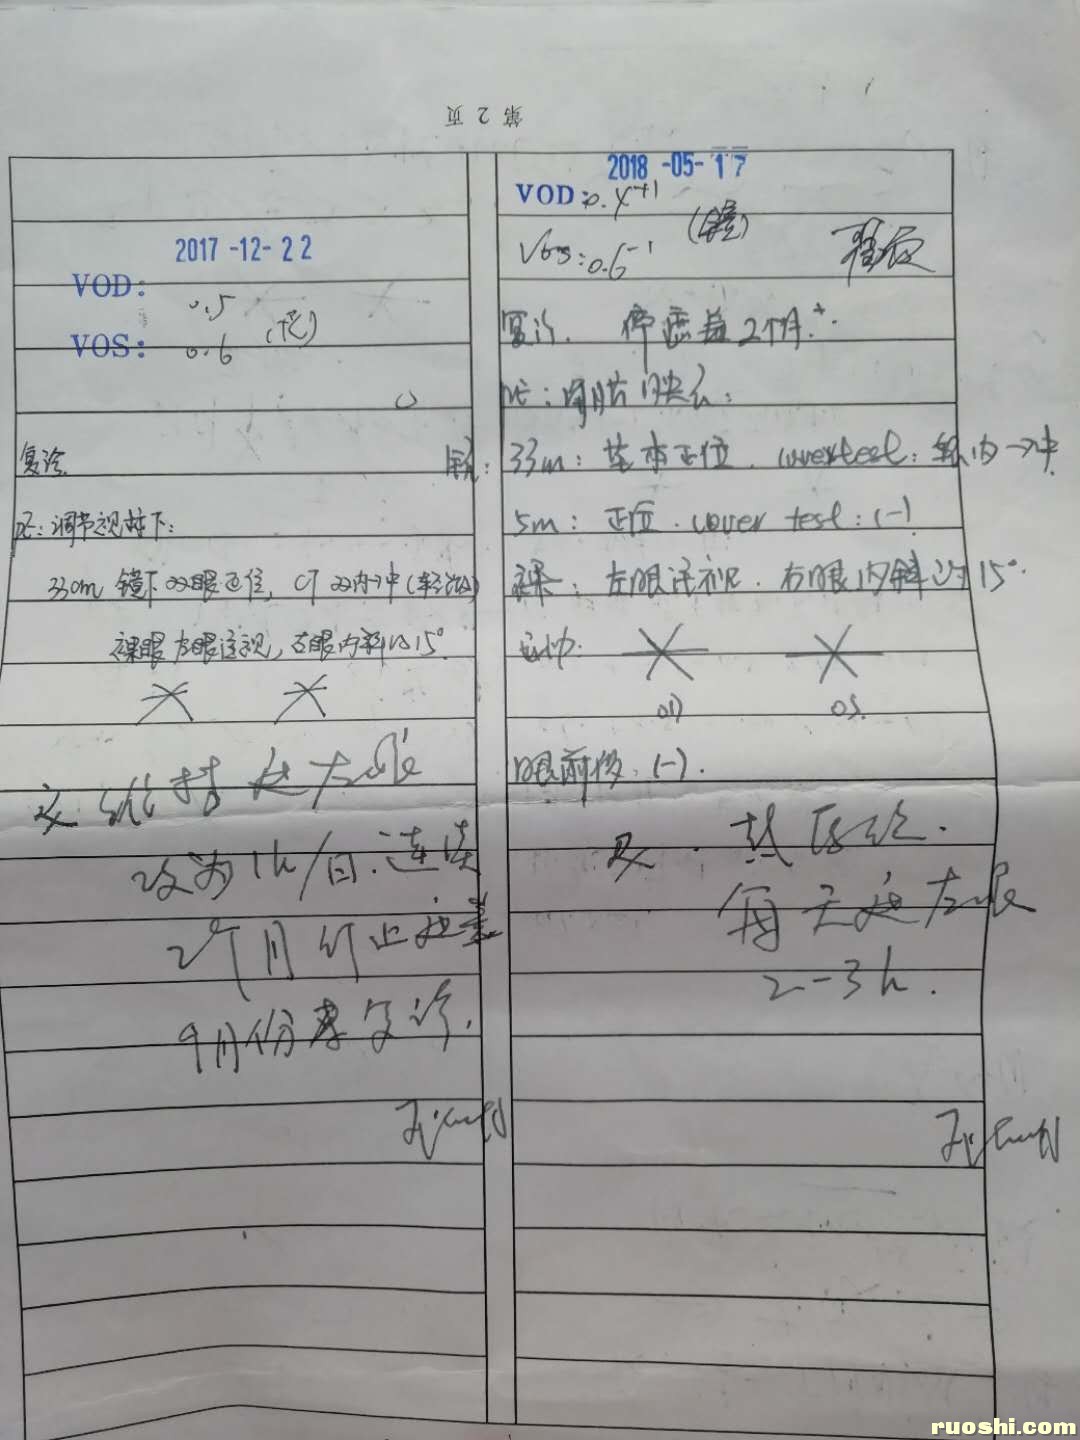 第 2 页
2017-12-22
VOD:
0.5
VOS:
0.6
复诊.
PE: 调节视标下:
33cm 镜下双眼正位, CT 双内→中(轻微)
裸眼 左眼注视, 右眼内斜约15°
遮左眼
改为1h/日.连续
2个月 停止遮盖
9月份来复诊.
2018-05-17
VOD:0.4+1
(镜)
Vos:0.6-1
复诊. 停遮盖2个月+.
PE:
镜: 33cm: 基本正位. cover test: 内→中
5m: 正位. cover test: (-)
裸: 左眼注视. 右眼内斜约15°
运动:
OD OS.
眼前段. (-).
Rx.
每天遮左眼
2-3h.
ruoshi.com